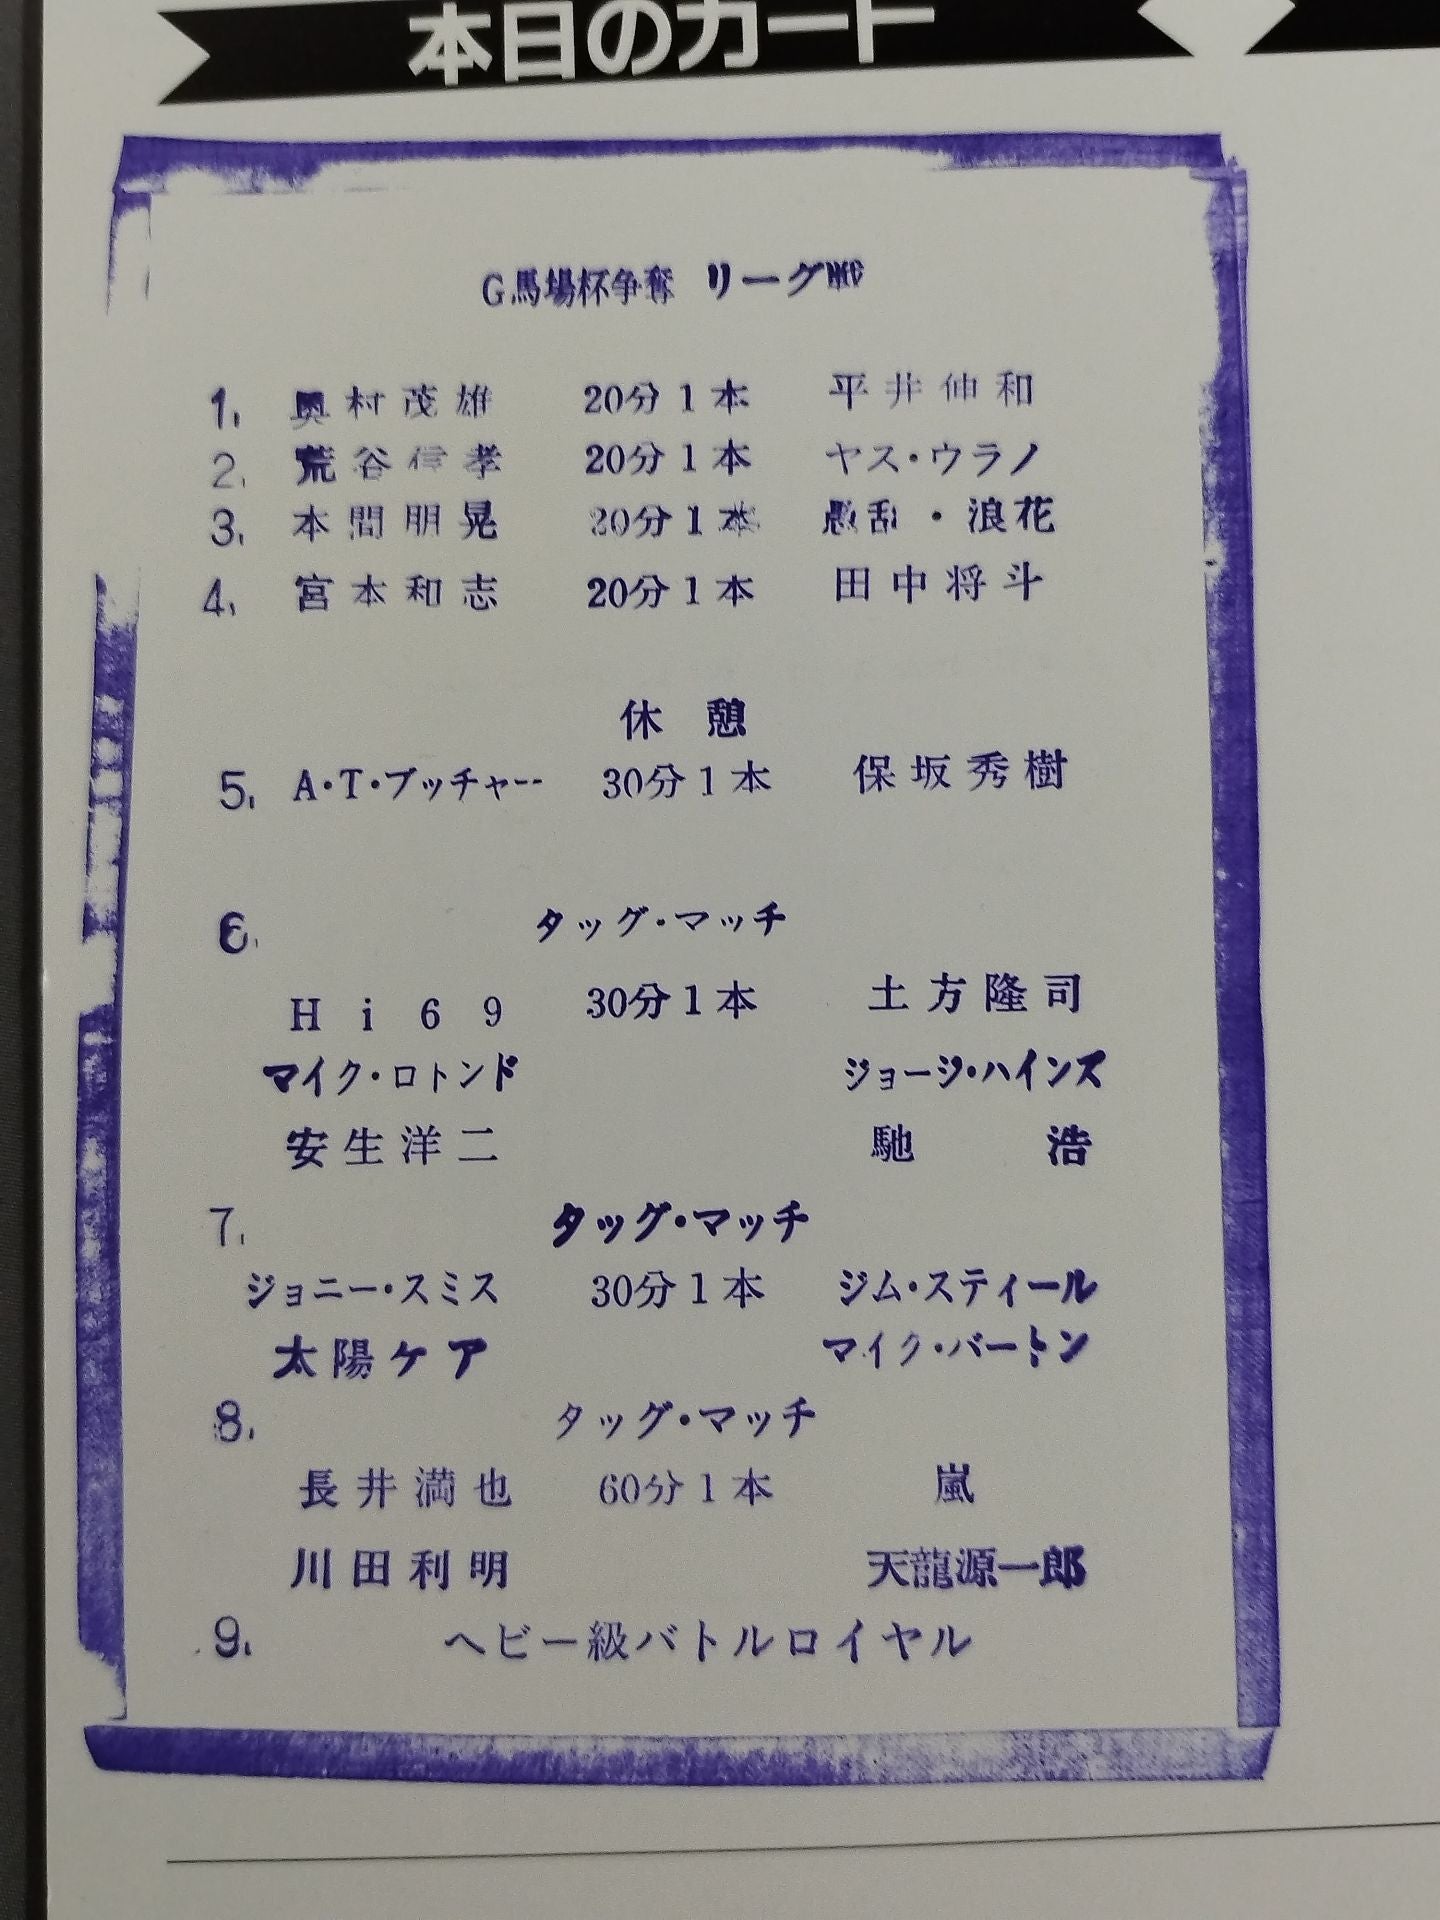 本日のカード
G馬場杯争奪 リーグ
1. 奥村茂雄 20分1本 平井伸和
2. 荒谷信孝 20分1本 ヤス・ウラノ
3. 本間朋晃 20分1本 愚乱・浪花
4. 宮本和志 20分1本 田中将斗
休憩
5. A・T・ブッチャー 30分1本 保坂秀樹
6. タッグ・マッチ
Hi69 30分1本 土方隆司
マイク・ロトンド ジョージ・ハインズ
安生洋二 馳浩
7. タッグ・マッチ
ジョニー・スミス 30分1本 ジム・スティール
太陽ケア マイク・バートン
8. タッグ・マッチ
長井満也 60分1本 嵐
川田利明 天龍源一郎
9. ヘビー級バトルロイヤル